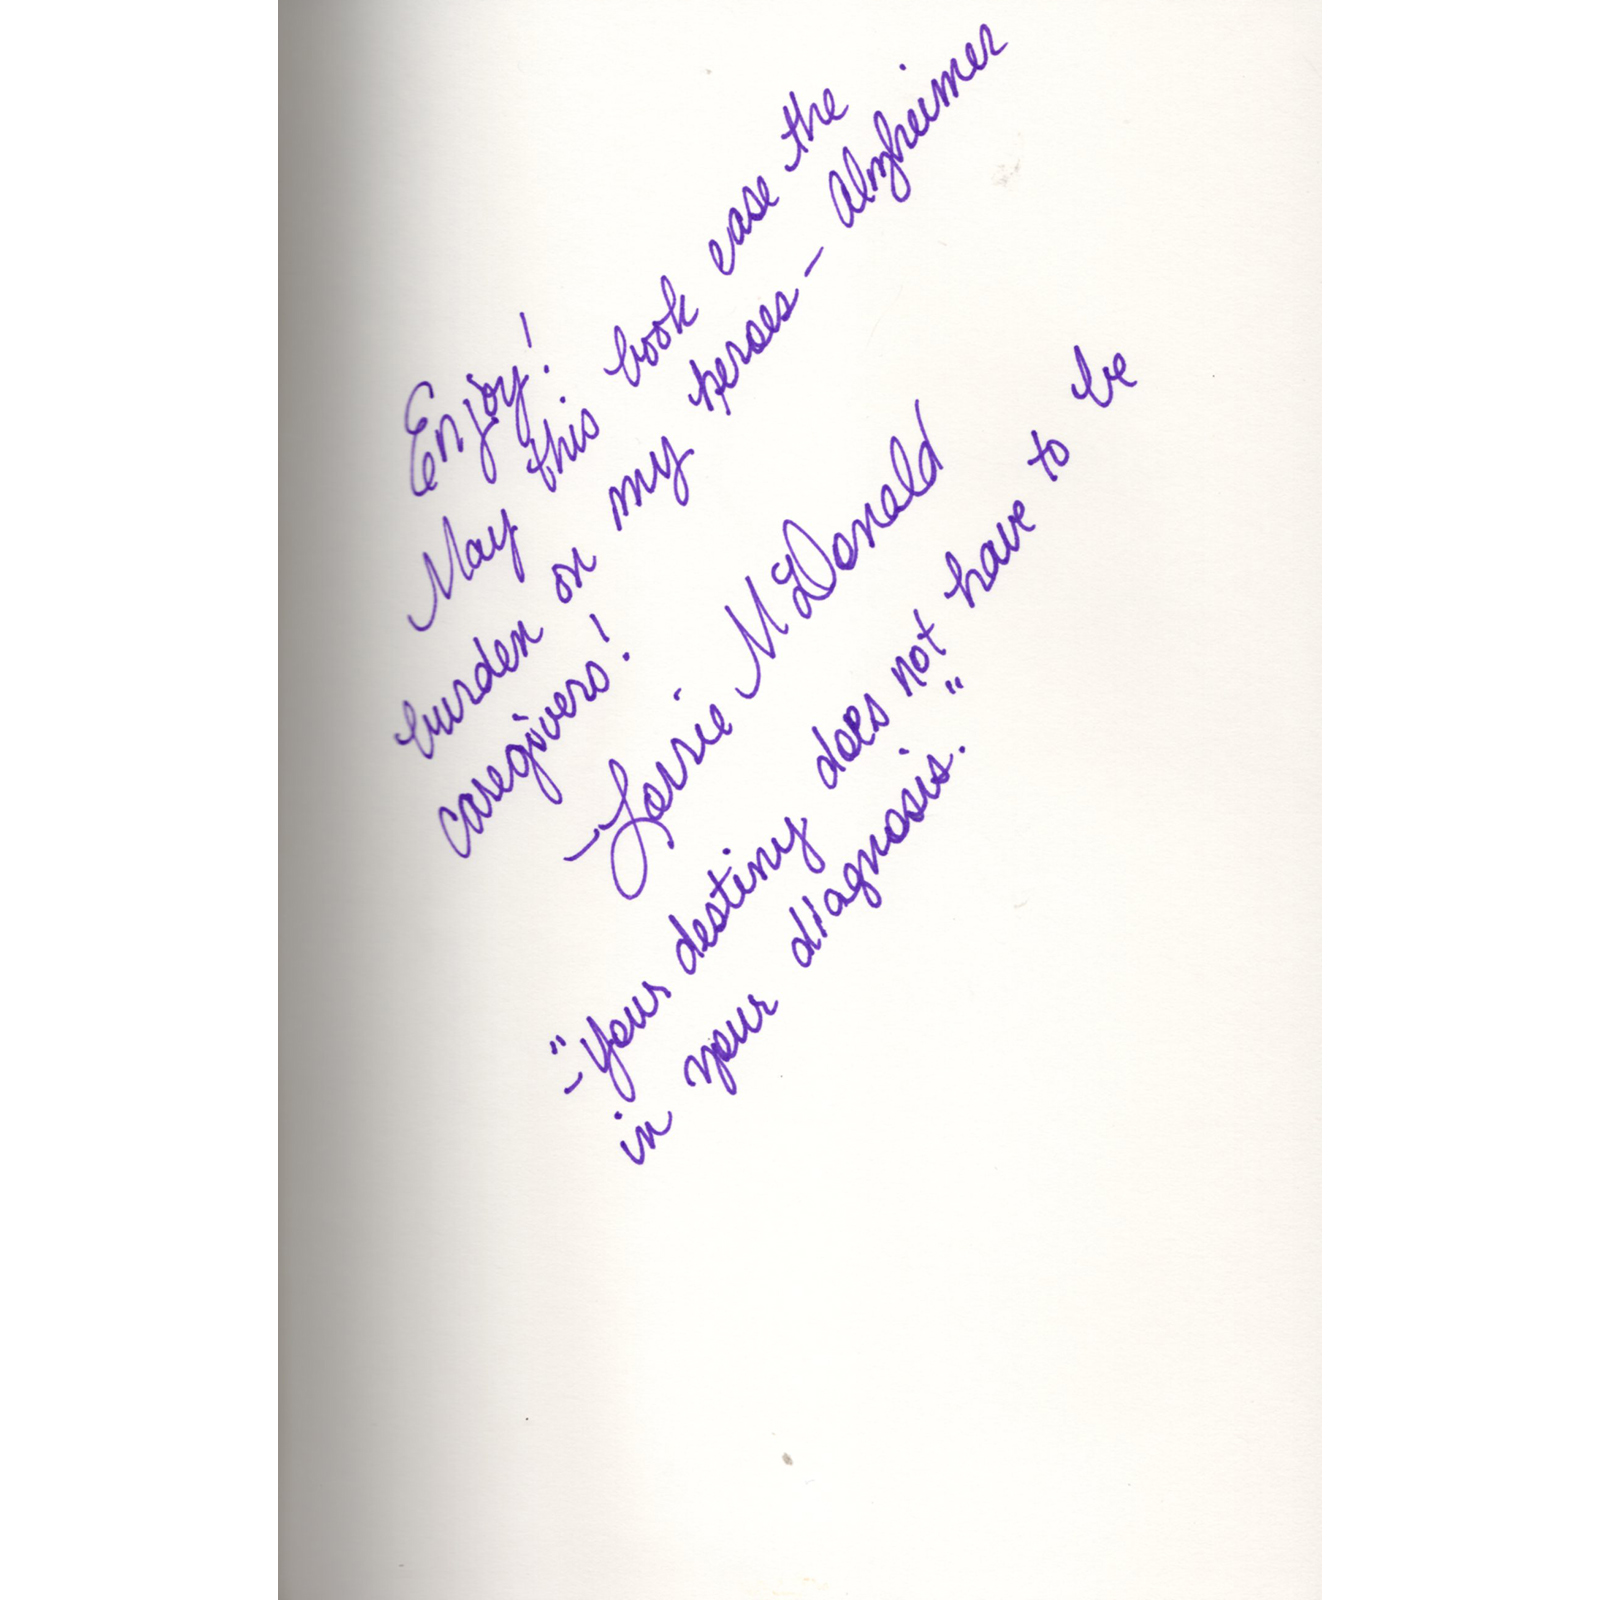 Enjoy!
May this book ease the
burden on my heroes - Alzheimer
caregivers!
- Lorrie McDonald
- "Your destiny does not have to be
in your diagnosis."